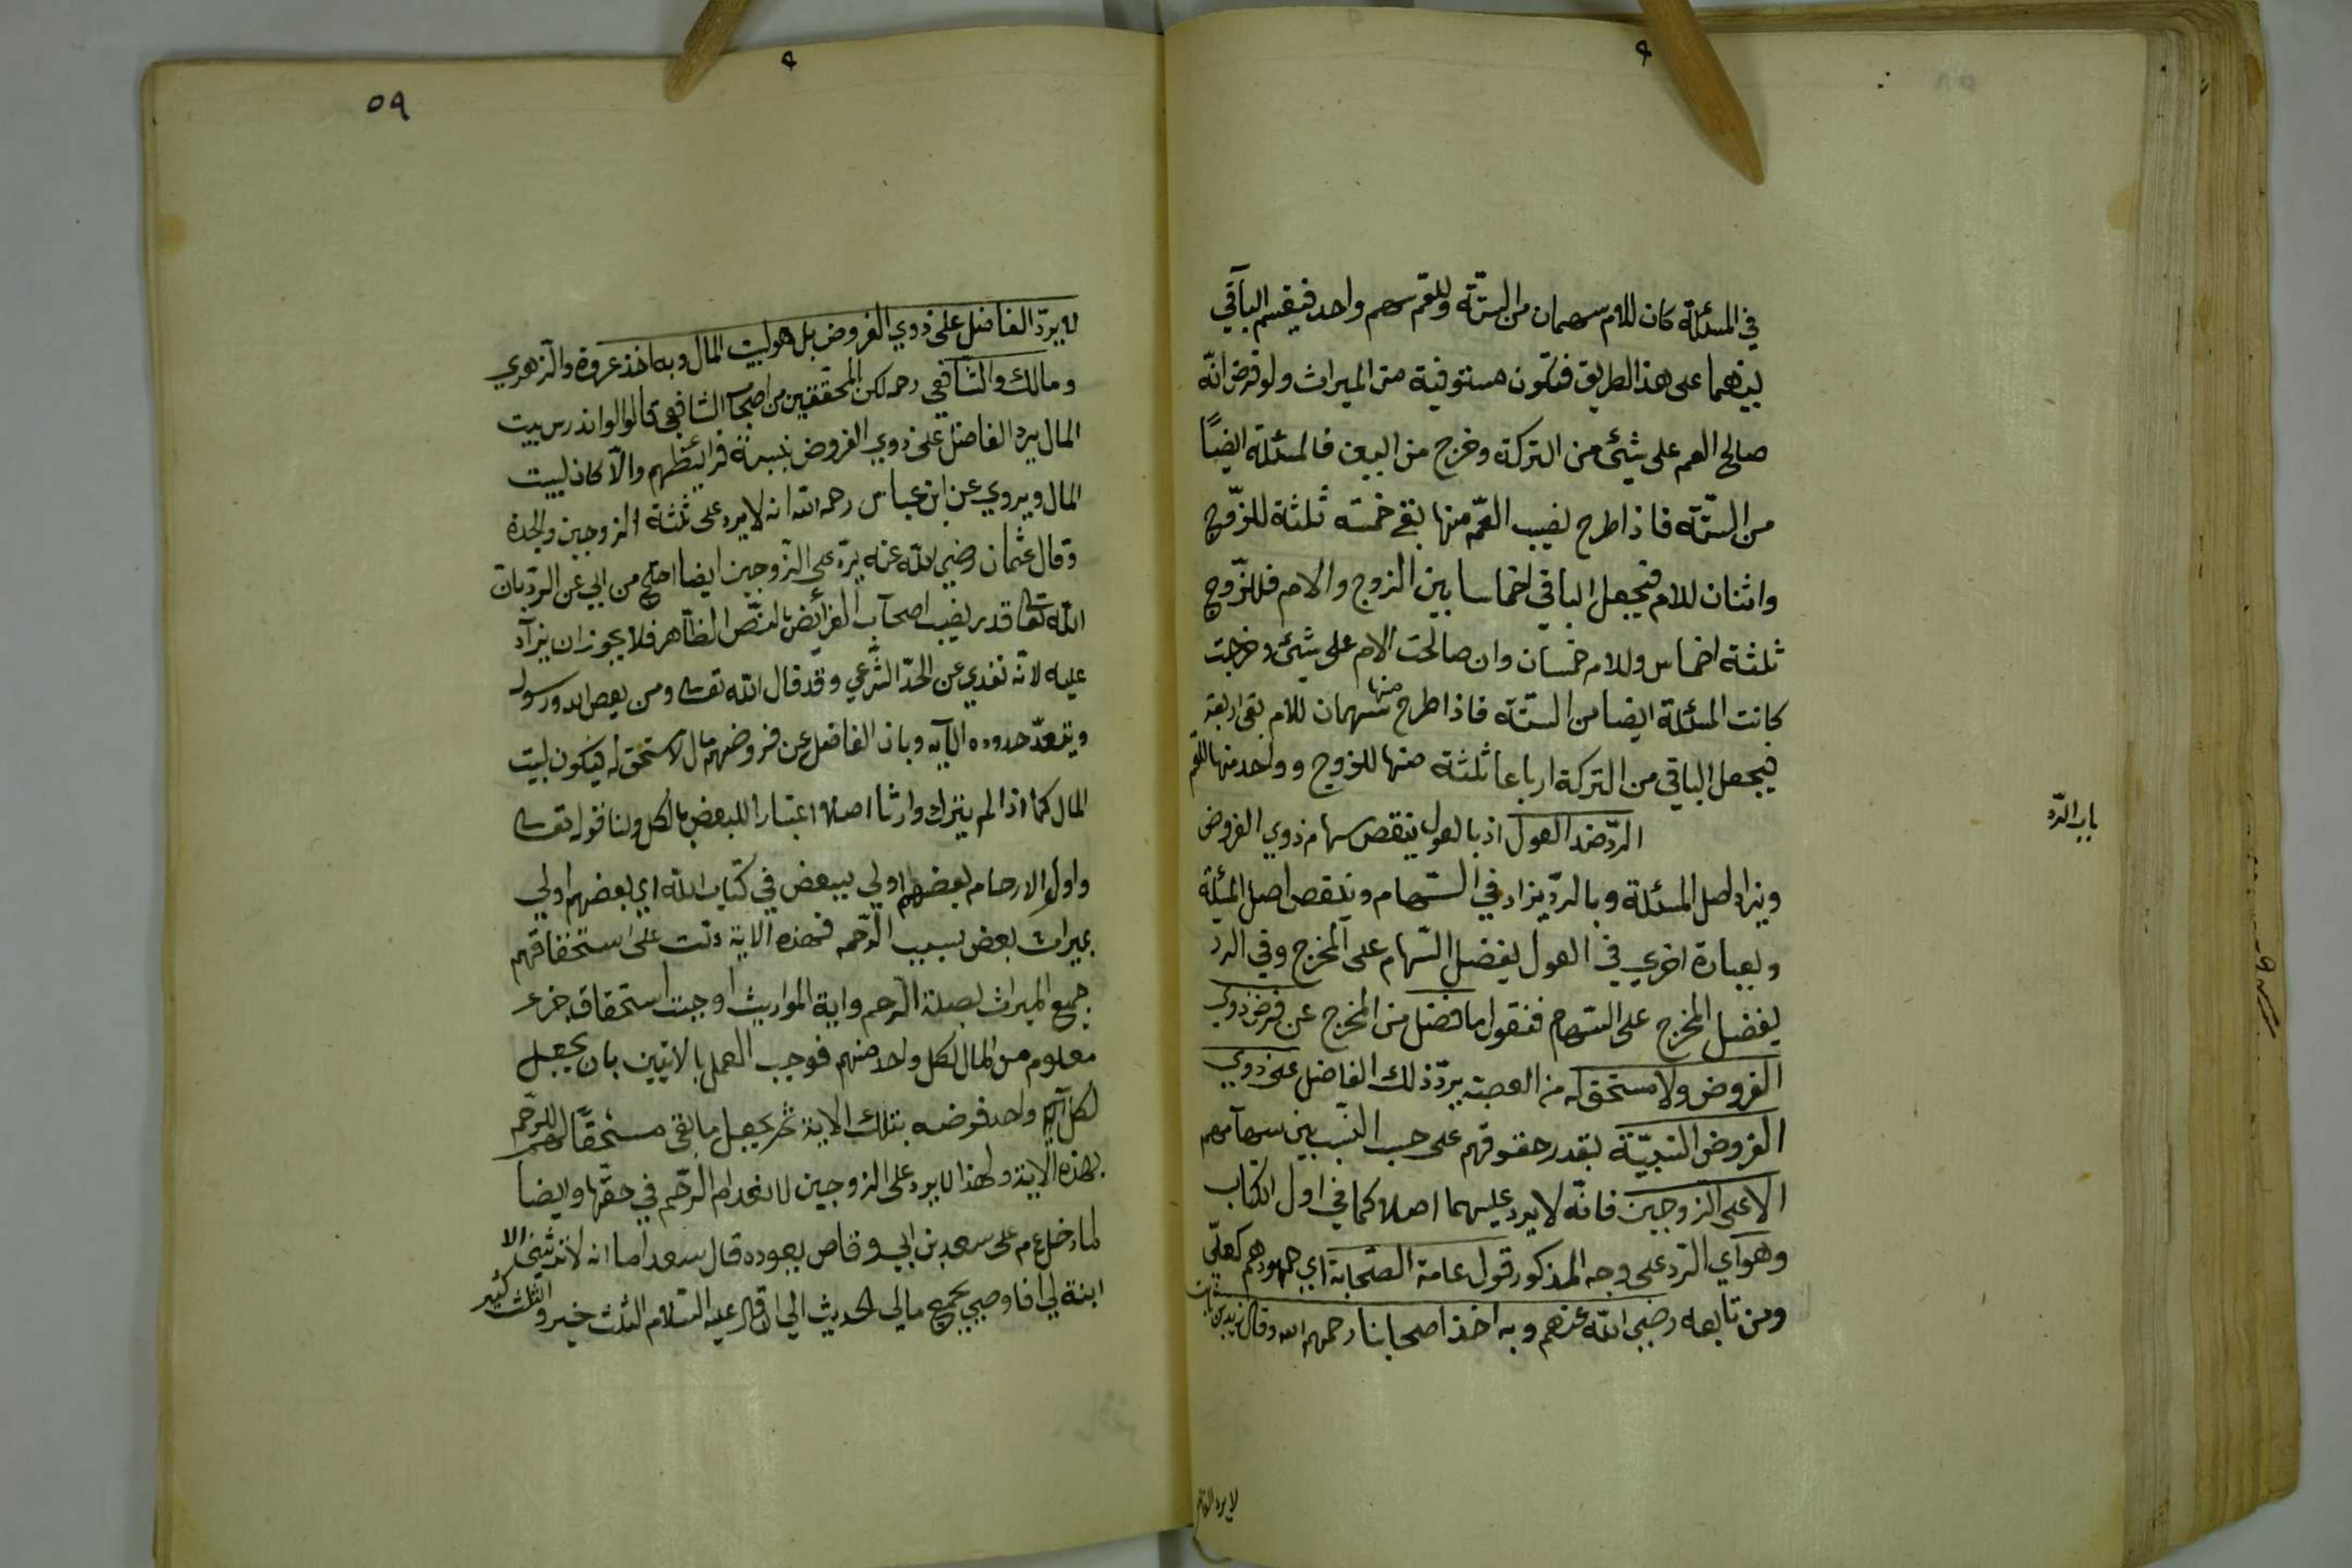 في المسئلة كان للام سهمان من الستة وللعم سهم واحد فيقسم الباقي
بينهما على هذا الطريق فتكون مستوفية من الميراث ولو فرض انّه
صالح العم على شئ من التركة وخرج من البين فالمسئلة ايضًا
من الستّة فاذا طرح نصيب العمّ منها بقي خمسة ثلثة للزّوج
واثنان للام فيجعل الباقي اخماسا بين الزوج والام فللزّوج
ثلثة اخماس وللام خمسان وان صالحت الام على شئ وخرجت
كانت المسئلة ايضا من الستة فاذا طرح منها سهمان للام بقي اربعة
فيجعل الباقي من التركة ارباعا ثلثة منها للزوج وواحد منها للعم
باب الرّد
الردّ ضد العول اذ بالعول ينقص سهام ذوي الفروض
ويزاد اصل المسئلة وبالردّ يزاد في السّهام وينقص اصل المسئلة
وبعبارة اخري في العول يفضل السّهام على المخرج وفي الرد
يفضل المخرج على السهام فنقول ما فضل من المخرج عن فرض ذوي
الفروض ولا مستحق له من العصبة يردّ ذلك الفاضل على ذوي
الفروض النسبيّة بقدر حقوقهم على حسب النسب بين سهامهم
الا على الزوجين فانّه لا يرد عليهما اصلا كما في اول الكتاب
وهو اي الرّد على وجه المذكور قول عامة الصّحابة اي جمهورهم كعليّ
ومن تابعه رضي الله عنهم وبه اخذ اصحابنا رحمهم الله وقال زيد بن ثابت
لا يرد الفاضل
٥٩
لا يردّ الفاضل على ذوي الفروض بل هو لبيت المال وبه اخذ عروة والزهري
ومالك والشافعي رحمه لكن المحققين من اصحاب الشافعي قالوا لو اندرس بيت
المال يرد الفاضل على ذوي الفروض بنسبة فرائضهم والّا كان لبيت
المال ويروي عن ابن عباس رحمه الله انه لا يرد على ثلثة الزوجين والجدة
وقال عثمان رضي الله عنه يردّ على الزّوجين ايضا احتج من ابي عن الردّ بان
الله تعا قدر نصيب اصحاب الفرائض بالنصّ الظاهر فلا يجوز ان يزاد
عليه لانّه تعدي عن الحدّ الشّرعي وقد قال الله تعا ومن يعص الله ورسوله
ويتعدّ حدوده الآيه وبان الفاضل عن فروضهم مال لا مستحق له فيكون لبيت
المال كما اذا لم يترك وارثا اصلا اعتبارا للبعض بالكل ولنا قوله تعا
واولوا الارحام بعضهم اولي ببعض في كتاب الله اي بعضهم اولي
بميراث بعض بسبب الرّحم فهذه الاية دلت على استحقاقهم
جميع الميراث بصلة الرّحم واية المواريث اوجبت استحقاق جزء
معلوم من المال لكل واحد منهم فوجب العمل بالايتين بان يجعل
لكل واحد فرضه بتلك الاية ثم يجعل ما بقي مستحقّا للرّحم
بهذه الاية ولهذا لا يرد على الزوجين لانعدام الرّحم في حقّها وايضا
لما دخل عم على سعد بن ابي وقاص يعوده قال سعد اما انه لا يرثني الا
ابنة لي افاوصي بجميع مالي الحديث الي ان قال عليه السّلام الثلث خير والثلث كثير